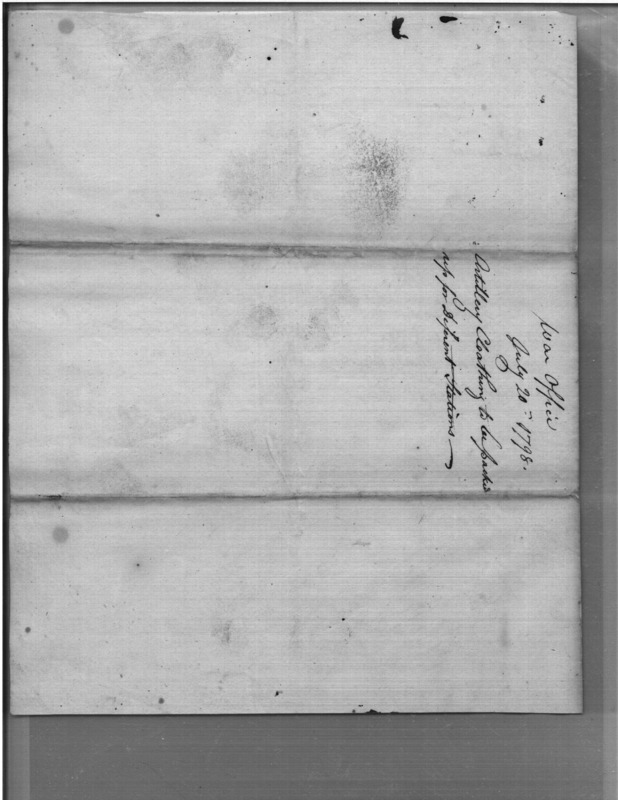 War Office
July 20th 1798.
Artillery Cloathing to be packed
up for Different Stations —